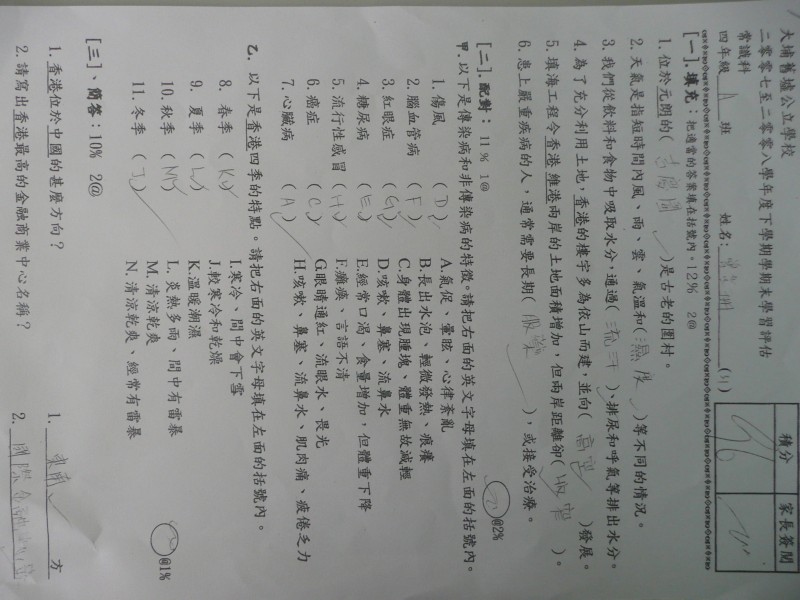 大埔舊墟公立學校
二零零七至二零零八學年度下學期學期末學習評估
常識科
四年級 A 班 姓名:
積分 家長簽閱
96
[一].填充:把適當的答案填在括號內。12% 2@
1. 位於元朗的( )是古老的圍村。
2. 天氣是指短時間內風、雨、雲、氣溫和( 濕度 )等不同的情況。
3. 我們從飲料和食物中吸取水分,通過( 流汗 )、排尿和呼氣等排出水分。
4. 為了充分利用土地,香港的樓宇多為依山而建,並向( 高空 )發展。
5. 填海工程令香港維港兩岸的土地面積增加,但兩岸距離卻( 收窄 )。
6. 患上嚴重疾病的人,通常需要長期( 服藥 ),或接受治療。
@2%
[二].配對:11% 1@
甲.以下是傳染病和非傳染病的特徵。請把右面的英文字母填在左面的括號內。
1. 傷風 ( D ) A.氣促、暈眩、心律紊亂
2. 腦血管病 ( F ) B.長出水泡、輕微發熱、痕癢
3. 紅眼症 ( G ) C.身體出現腫塊、體重無故減輕
4. 糖尿病 ( E ) D.咳嗽、鼻塞、流鼻水
5. 流行性感冒 ( H ) E.經常口渴、食量增加,但體重下降
6. 癌症 ( C ) F.癱瘓、言語不清
7. 心臟病 ( A ) G.眼睛通紅、流眼水、畏光
H.咳嗽、鼻塞、流鼻水、肌肉痛、疲倦乏力
乙. 以下是香港四季的特點。請把右面的英文字母填在左面的括號內。
8. 春季 ( K ) I.寒冷、間中會下雪
9. 夏季 ( L ) J.較寒冷和乾燥
10. 秋季 ( M ) K.溫暖潮濕
11. 冬季 ( J ) L. 炎熱多雨、間中有雷暴
M. 清涼乾爽
N. 清涼乾爽、經常有雷暴
@1%
[三]、簡答:10% 2@
1. 香港位於中國的甚麼方向? 1. 東南 方
2. 請寫出香港最高的金融商業中心名稱? 2. 國際金融